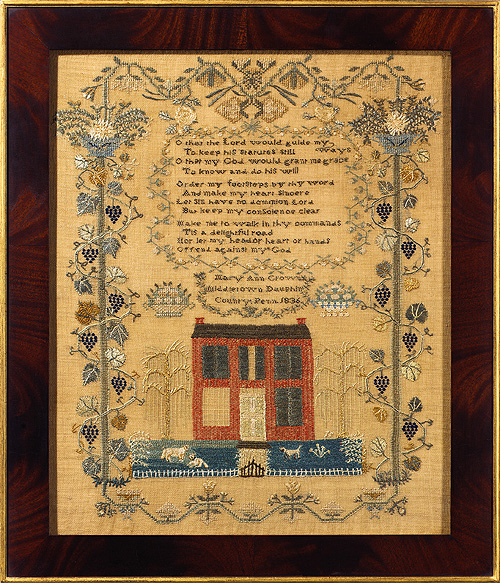 O that the Lord would guide my
ways
To keep his statutes still
O that my God would grant me grace
To know and do his will
Order my footsteps by thy word
And make my heart sincere
Let sin have no dominion Lord
But keep my conscience clear
Make me to walk in thy commands
Tis a delightful road
Nor let my head or heart or hands
Offend against my God
Mary Ann Crow
Middletown Dauphin
County Penn 1836